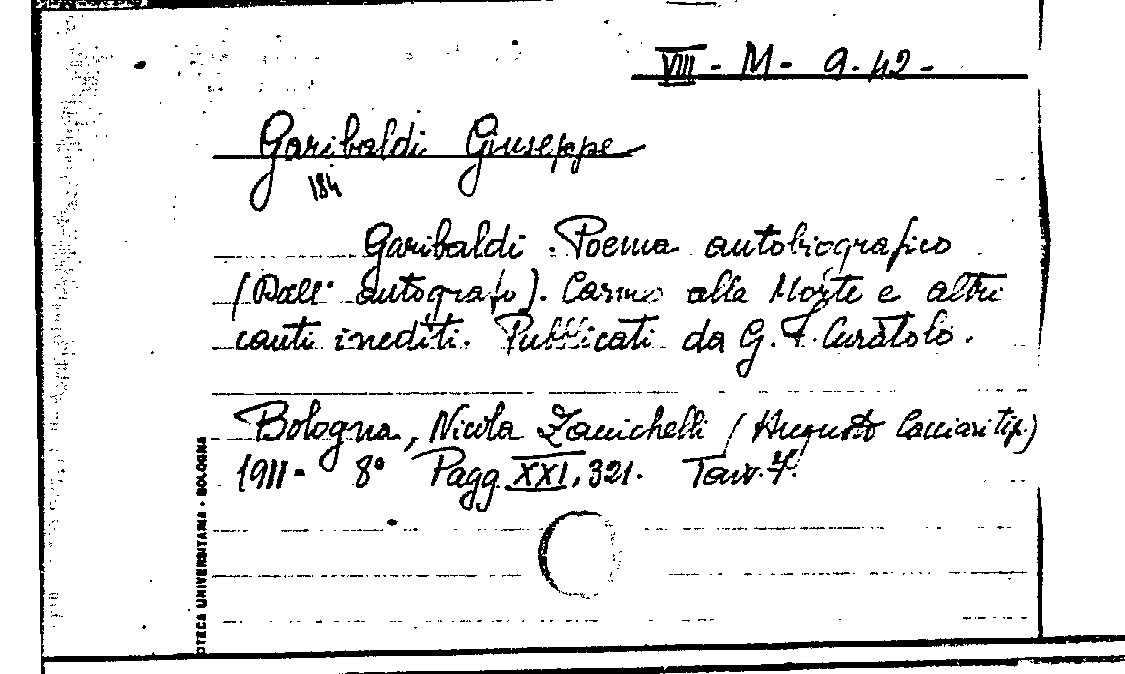 VIII - M - 9. 42 -
Garibaldi Giuseppe
184
Garibaldi. Poema autobiografico
(Dall' autografo). Carme alla Morte e altri
canti inediti. Pubblicati da G. F. Curàtolo.
Bologna, Nicola Zanichelli (Augusto Cacciari tip.)
1911 - 8° Pagg. XXI, 321. Tavv. 7.
OTECA UNIVERSITARIA - BOLOGNA